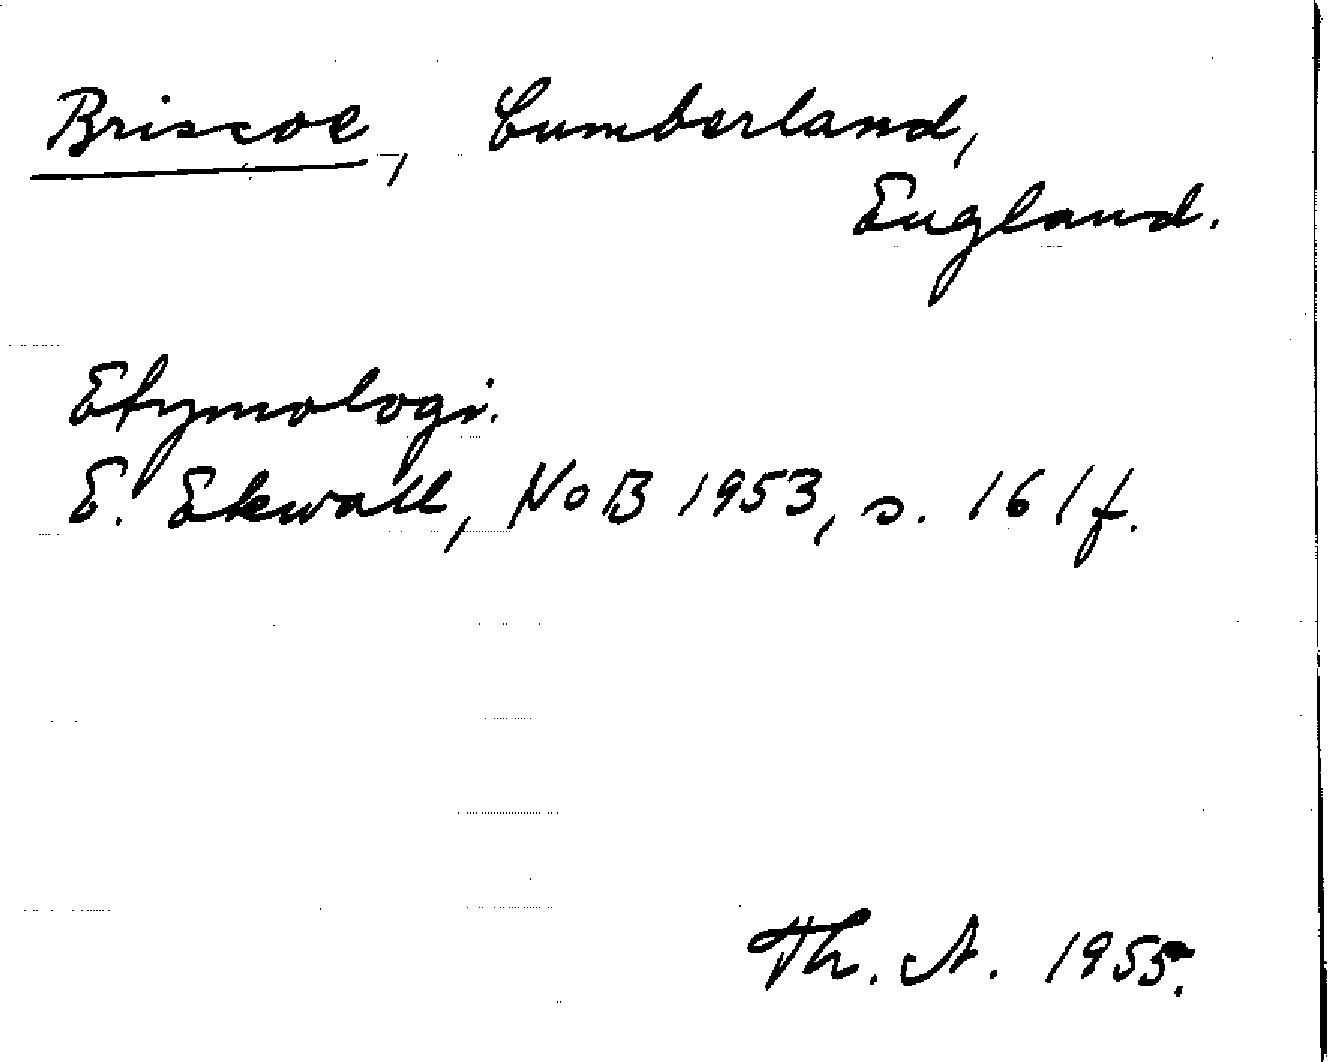 Briscoe, Cumberland,
England.
Etymologi.
E. Ekwall, NoB 1953, s. 161 f.
Th. A. 1955.